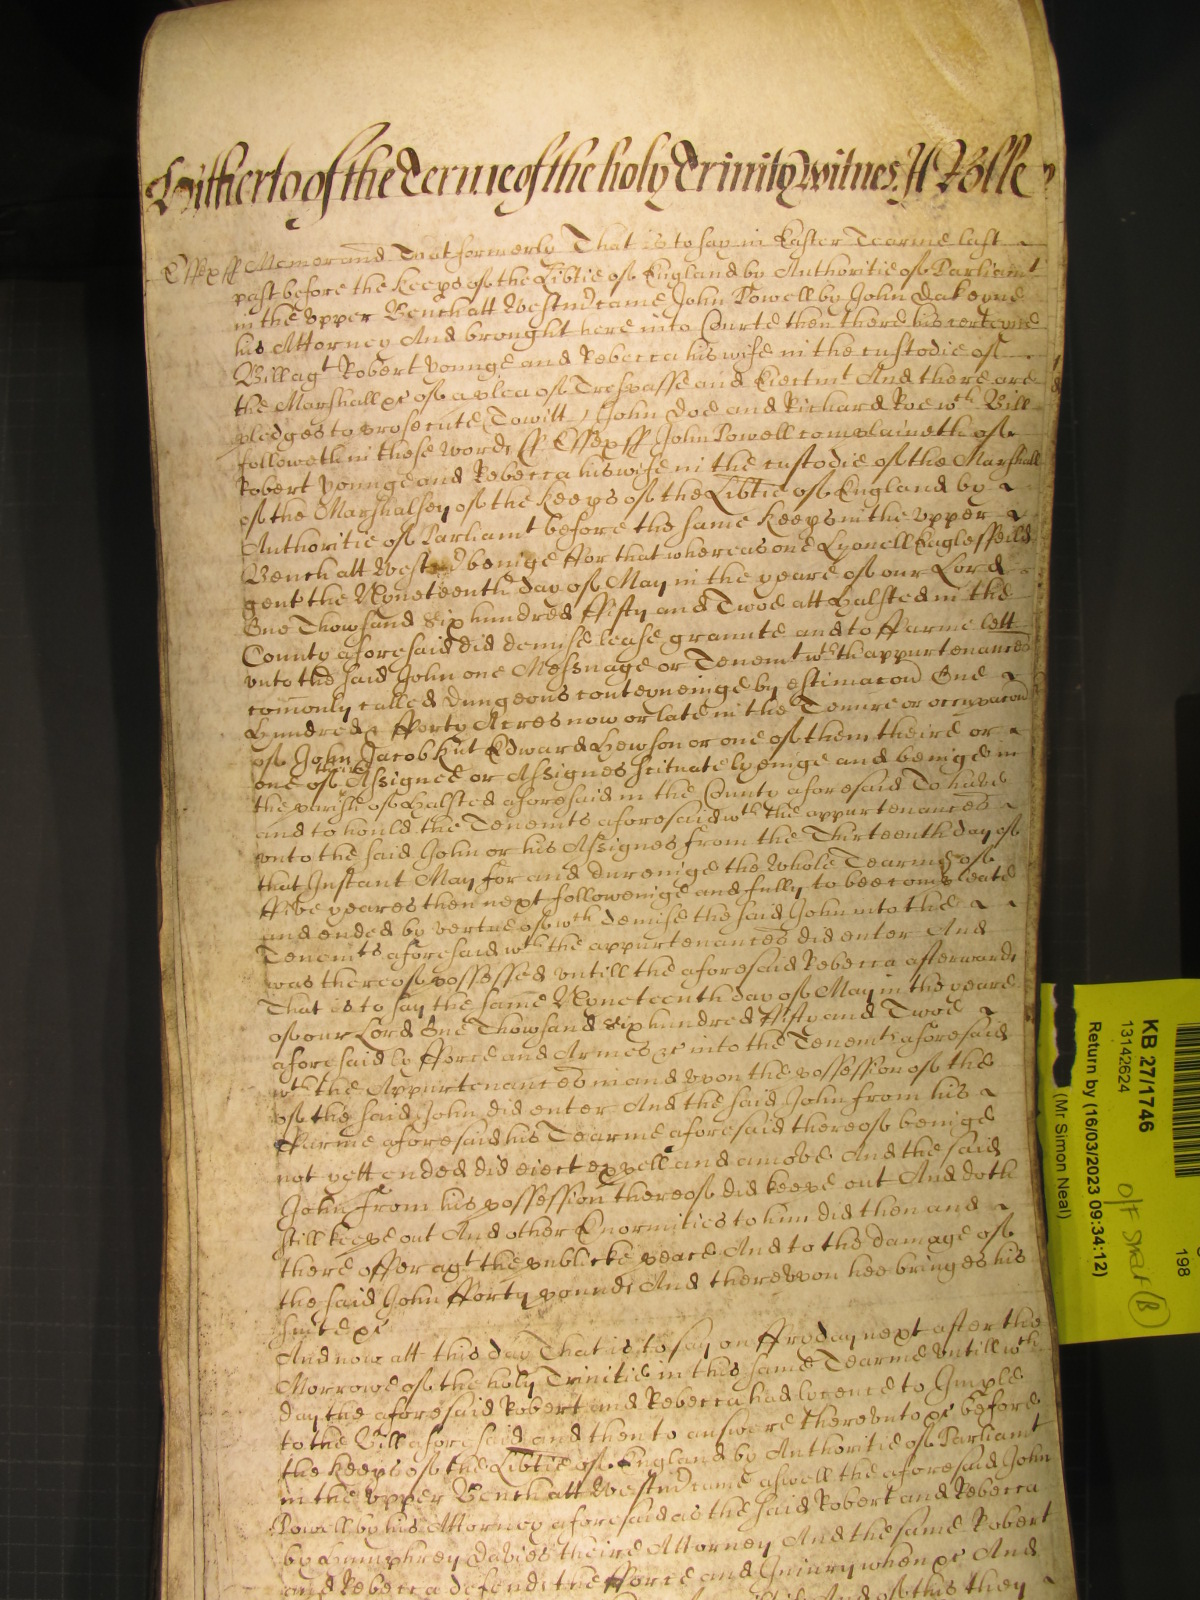 Hitherto of the Terme of the holy Trinity witnes H Rolle
Essex ss Memorand That formerly That is to say in Easter Tearme last
past before the Keeps of the Libtie of England by Authoritie of Parliamt
in the Vpper Bench att Westm came John Powell by John
his Attorney And brought here into Courte then there his certeyne
Bill agt Robert Younge and Rebecca his wife in the custodie of
the Marshall &c of a plea of Trespasse and Eiectmt And there are
pledges to prosecute Towitt John Doe and Richard Roe wch Bill
followeth in these words ss Essex ss John Powell complaineth of
Robert Younge and Rebecca his wife in the custodie of the Marshall
of the Marshalsey of the Keeps of the Libtie of England by
Authoritie of Parliamt before the same Keeps in the Vpper
Bench att Westm beinge ffor that whereas one Lyonell Inglesfeild
gent the Nyneteenth day of May in the yeare of our Lord
One Thowsand Six hundred ffifty and Twoe att Halsted in the
County aforesaid did demise lease graunte and to ffarme lett
vnto the said John one Messuage or Tenemt wth thappurtenances
comonly called Dungeons conteyneinge by estimacon One
Hundred & fforty Acres now or late in the Tenure or occupacon
of John Jacob Kut Edward Hewson or one of them theire or
one of theire Assignee or Assignes scituate lyeinge and beinge in
the parish of Halsted aforesaid in the County aforesaid To have
and to hould the Tenemts aforesaid wth the appurtenances
vnto the said John or his Assignes from the Thirteenth day of
that Instant May for and dureinge the Whole Tearme of
ffive yeares then next followeinge and fully to bee compleate
and ended by vertue of wch demise the said John into the
Tenemts aforesaid wth the appurtenances did enter And
was thereof possessed vntill the aforesaid Rebecca afterwards
That is to say the same Nyneteenth day of May in the yeare
of our Lord One Thowsand Six hundred ffifty and Twoe
aforesaid by fforce and Armes &c into the Tenemts aforesaid
wth the Appurtenances in and vpon the possession of the
of the said John did enter And the said John from his
ffarme aforesaid his Tearme aforesaid thereof beinge
not yett ended did eiect expell and amove And the said
John from his possession thereof did keepe out And doth
still keepe out And other Enormities to him did then and
there offer agt the publicke peace And to the damage of
the said John fforty pounds And therevpon hee bringes his
suite &c
And now att this day That is to say on ffryday next after the
Morrowe of the holy Trinitie in this same Tearme vntill wch
day the aforesaid Robert and Rebecca had lycence to Imple
to the Bill aforesaid and then to answere therevnto &c before
the Keeps of the Libtie of England by Authoritie of Parliamt
in the Vpper Bench att Westm came aswell the aforesaid John
Powell by his Attorney aforesaid as the said Robert and Rebecca
by Humphrey Davies theire Attorney And the same Robert
and Rebecca defends the fforce and Iniury when &c And
And of this they
KB 27/1746
13142624
Return by (16/03/2023 09:34:12)
(Mr Simon Neal)
198
B